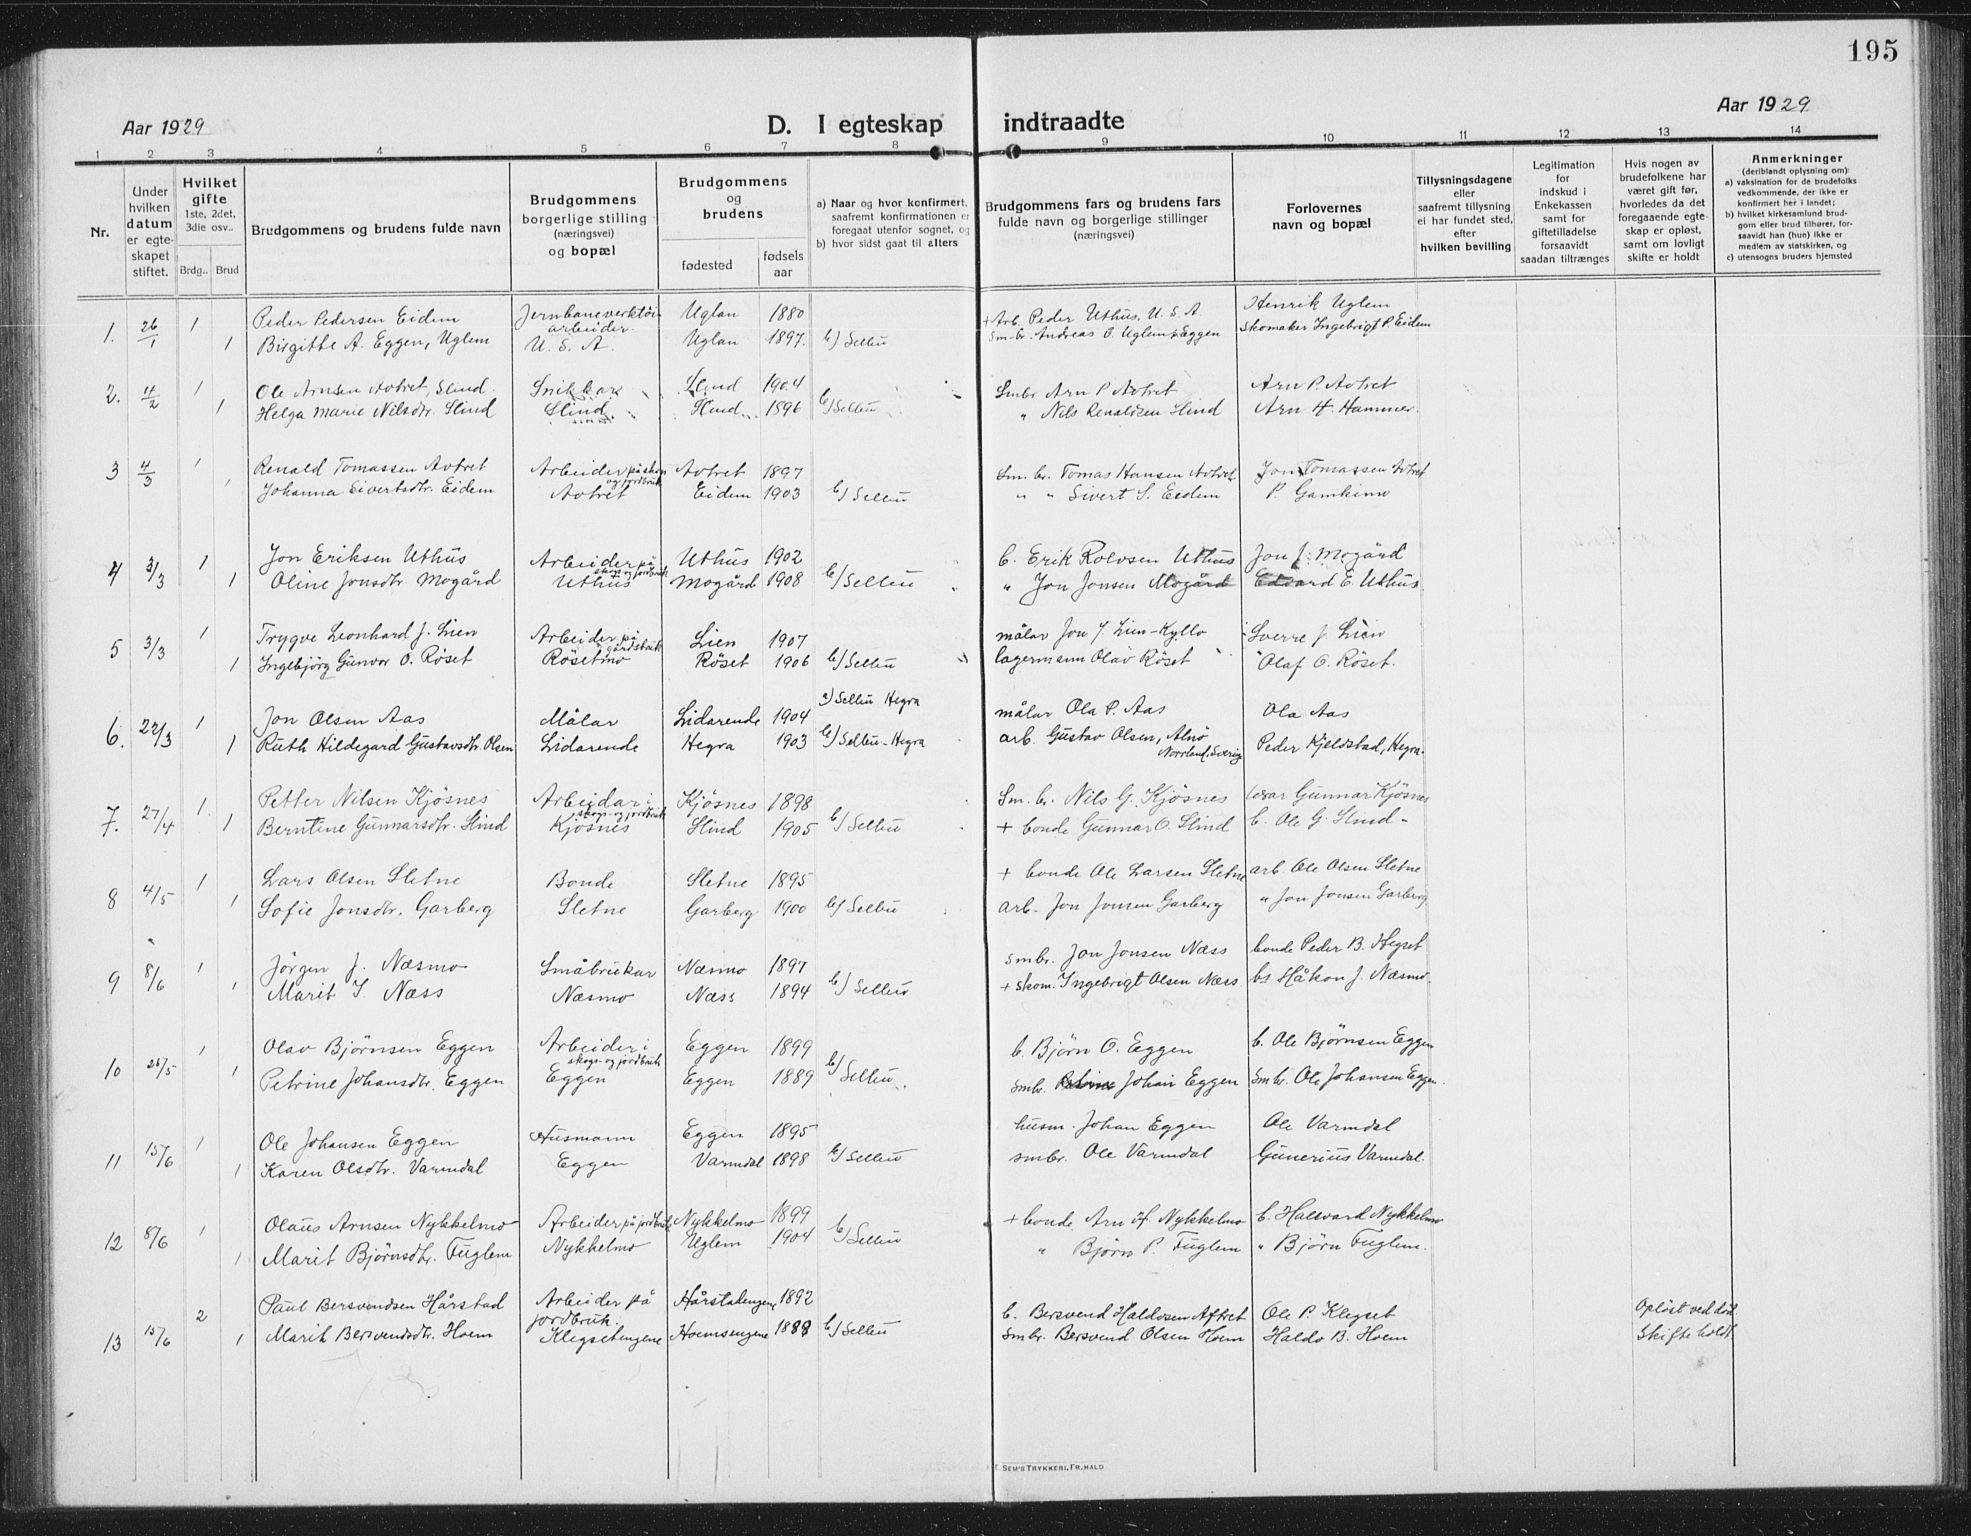 195
Aar 1929
D. I egteskap indtraadte
Aar 1929
1 2 3 4 5 6 7 8 9 10 11 12 13 14
Nr.
Under hvilken datum er egteskapet stiftet.
Hvilket gifte 1ste, 2det, 3die osv..
Brdg.. Brud
Brudgommens og brudens fulde navn
Brudgommens borgerlige stilling (næringsvei) og bopæl
Brudgommens og brudens
fødested
fødsels aar
a) Naar og hvor konfirmert, saafremt konfirmationen er foregaat utenfor sognet, og
b) hvor sidst gaat til alters
Brudgommens fars og brudens fars fulde navn og borgerlige stillinger (næringsvei)
Forlovernes navn og bopæl
Tillysningsdagene eller saafremt tillysning ei har fundet sted, efter hvilken bevilling
Legitimation for indskud i Enkekassen samt for giftetilladelse forsaavidt saadan tiltrænges
Hvis nogen av brudefolkene har været gift før, hvorledes da det foregaaende egteskap er opløst, samt om lovligt skifte er holdt
Anmerkninger
(deriblandt oplysning om):
a) vaksination for de brudefolks vedkommende, der ikke er konfirmert her i landet;
b) hvilket kirkesamfund brudgom eller brud tilhører, forsaavidt han (hun) ikke er medlem av statskirken, og
c) utensogns bruders hjemsted
1. 26/1 1 Peder Pedersen Eidem Jernbaneverktøi arbeider Uglan 1880 + Arb. Peder Uthus, U. S. A Henrik Uglem
1 Birgitte A. Eggen, Uglem U. S. A. Uglan 1897. b) Selbu Sm-br. Andreas O. Uglem, Eggen Skomaker Ingebrigt P. Eidem
2. 4/2 1 Ole Arnsen Avtret, Slind. Snikkar Slind 1904 Smbr Arn P. Avtret Arn P. Avtret
1 Helga Marie Nilsdtr. Slind Slind Slind 1896 b) Selbu " Nils Renaldsen Slind Arn H. Hammer.
3 4/3 1 Renald Tomassen Avtret Arbeider på skog og jordbruk Avtret 1897 Sm. br. Tomas Hansen Avtret Jon Tomassen Avtret
1 Johanna Sivertsdtr. Eidem Avtret Eidem 1903 b) Selbu " " Sivert S. Eidem P. Gamkinn
4 3/3 1 Jon Eriksen Uthus Arbeider på skog og jordbruk Uthus 1902 b. Erik Rolvsen Uthus Jon J. Mogård
1 Oline Jonsdtr Mogård Uthus Mogård 1908 b) Selbu " Jon Jonsen Mogård Edvard E. Uthus.
5 3/3 1 Trygve Leonhard J. Lien Arbeider på gårdsbruk Lien 1907 målar Jon J. Lien-Kyllo Sverre J. Lien
1 Ingebjörg Gunvor O. Röset Rösetmo Röset 1906 b) Selbu lagermann Olav Röset Olaf O. Röset.
6. 22/3 1 Jon Olsen Aas Målar Lidarende 1904 a) Selbu Hegra målar Ola P. Aas Ola Aas
1 Ruth Hildegard Gustavsdtr. Olsen Lidarende Hegra 1903 b) Selbu-Hegra arb. Gustav Olsen, Alnö Norrland, Sverige Peder Kjeldstad, Hegra.
7. 27/4 1 Petter Nilsen Kjösnes Arbeidar i skogs- og jordbruk Kjösnes 1898 Sm. br. Nils G. Kjösnes Gunnar Kjösnes
1 Berntine Gunnarsdtr. Slind Kjösnes Slind 1905 b) Selbu + bonde Gunnar O. Slind b. Ole G. Slind
8 4/5 1 Lars Olsen Sletne Bonde Sletne 1895 + bonde Ole Larsen Sletne arb Ole Olsen Sletne
1 Sofie Jonsdtr. Garberg Sletne Garberg 1900 b) Selbu arb. Jon Jonsen Garberg " Jon Jonsen Garberg
9 8/6 1 Jörgen J. Næsmo Småbrukar Næsmo 1897 smbr. Jon Jonsen Næss bonde Peder B. Hegset
1 Marit I. Næss Næsmo Næss 1894 b) Selbu + skom. Ingebrigt Olsen Næss Håkon J. Næsmo.
10 26/5 1 Olav Björnsen Eggen Arbeider i skogs- og jordbruk Eggen 1899 b. Björn O. Eggen b. Ole Björnsen Eggen
1 Petrine Johansdtr. Eggen Eggen Eggen 1889 b) Selbu Smbr. Johan Eggen Smbr. Ole Johansen Eggen.
11 15/6 1 Ole Johansen Eggen Husmann Eggen 1895 husm. Johan Eggen Ole Varmdal
1 Karen Olsdtr. Varmdal Eggen Varmdal 1898 b) Selbu smbr. Ole Varmdal Gunerius Varmdal.
12 8/6 1 Olaus Arnsen Nykkelmo Arbeider på jordbruk Nykkelmo 1899 + bonde Arn H. Nykkelmo b. Halvard Nykkelmo
1 Marit Björnsdtr. Fuglem Nykkelmo Uglem 1904 b) Selbu " Björn P. Fuglem " Björn Fuglem.
13 15/6 2 Paul Bersvendsen Hårstad Arbeider på jordbruk Hårstadengene 1892 b. Bersvend Haldosen Aftret Ole P. Klegset Oplöst ved död.
1 Marit Bersvendsdtr. Hoem Klegsetengene Hoemsengene 1888 b) Selbu Smbr. Bersvend Olsen Hoem Haldo B. Hoem Skifte holdt.
E. SEM'S TRYKKERI, FR.HALD